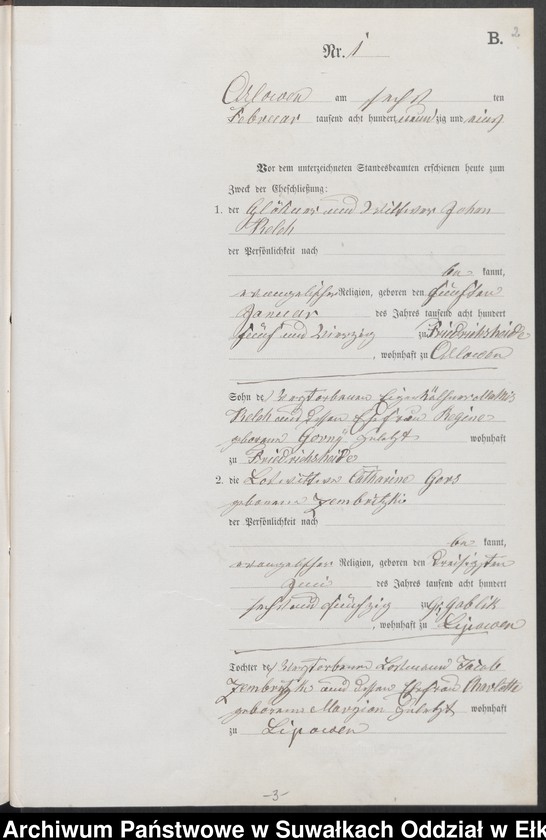 B.
2
Nr. 1
Orlowen am sechsten
Februar tausend acht hundert neunzig und eins
Vor dem unterzeichneten Standesbeamten erschienen heute zum
Zweck der Eheschließung:
1. der Glöckner und Wittwer Johan
Kelch
der Persönlichkeit nach
be kannt,
evangelischer Religion, geboren den fünften
Januar des Jahres tausend acht hundert
fünf und vierzig zu Friedrichsheide
, wohnhaft zu Orlowen
Sohn des verstorbenen Eigenkäthner Mathis
Kelch und dessen Ehefrau Regine
geborene Gorny zuletzt wohnhaft
zu Friedrichsheide
2. die Catharine Gors
geborene Zembritzki
der Persönlichkeit nach
be kannt,
evangelischer Religion, geboren den dreisigsten
Juni des Jahres tausend acht hundert
sechs und fünfzig zu Gr. Gablik
, wohnhaft zu Lipowen
Tochter des verstorbenen Losmann Jacob
Zembritzki und dessen Ehefrau Charlotte
geborene zuletzt wohnhaft
zu Lipowen
-3-
Archiwum Państwowe w Suwałkach Oddział w Ełk